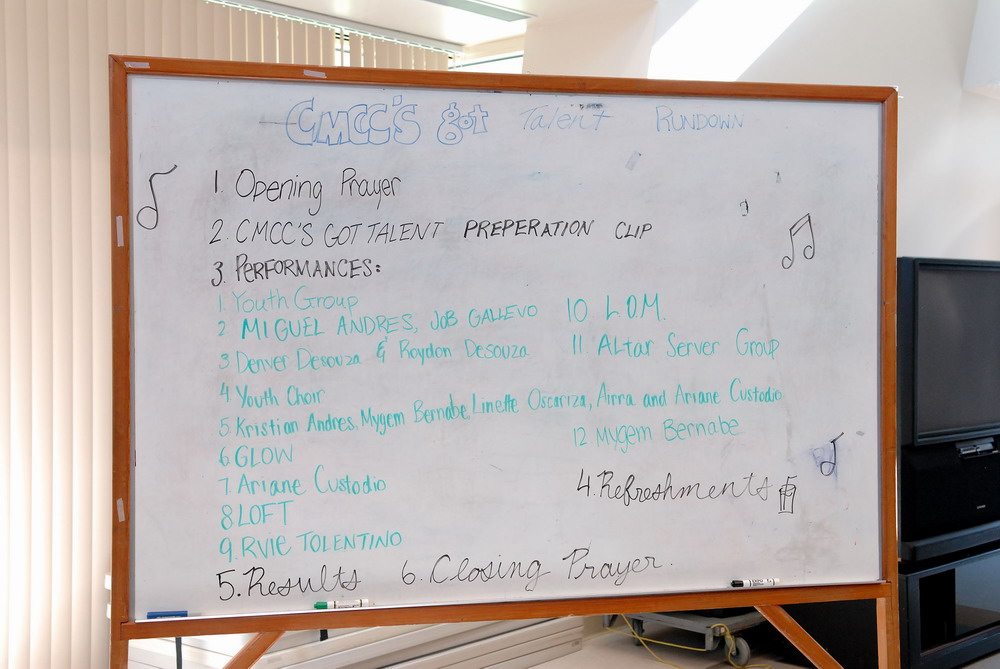 CMCC'S got Talent RUNDOWN
1. Opening Prayer
2. CMCC'S GOT TALENT PREPERATION CLIP
3. PERFORMANCES:
1. Youth Group
2 MIGUEL ANDRES, JOB GALLEVO
3 Denver Desouza & Roydon Desouza
4 Youth Choir
5 Kristian Andres, Mygem Bernabe, Linette Oscariza, Airra and Ariane Custodio
6 GLOW
7. Ariane Custodio
8 LOFT
9. RVIE TOLENTINO
10 L.O.M.
11. ALtar Server Group
12 Mygem Bernabe
4. Refreshments
5. Results 6. Closing Prayer.